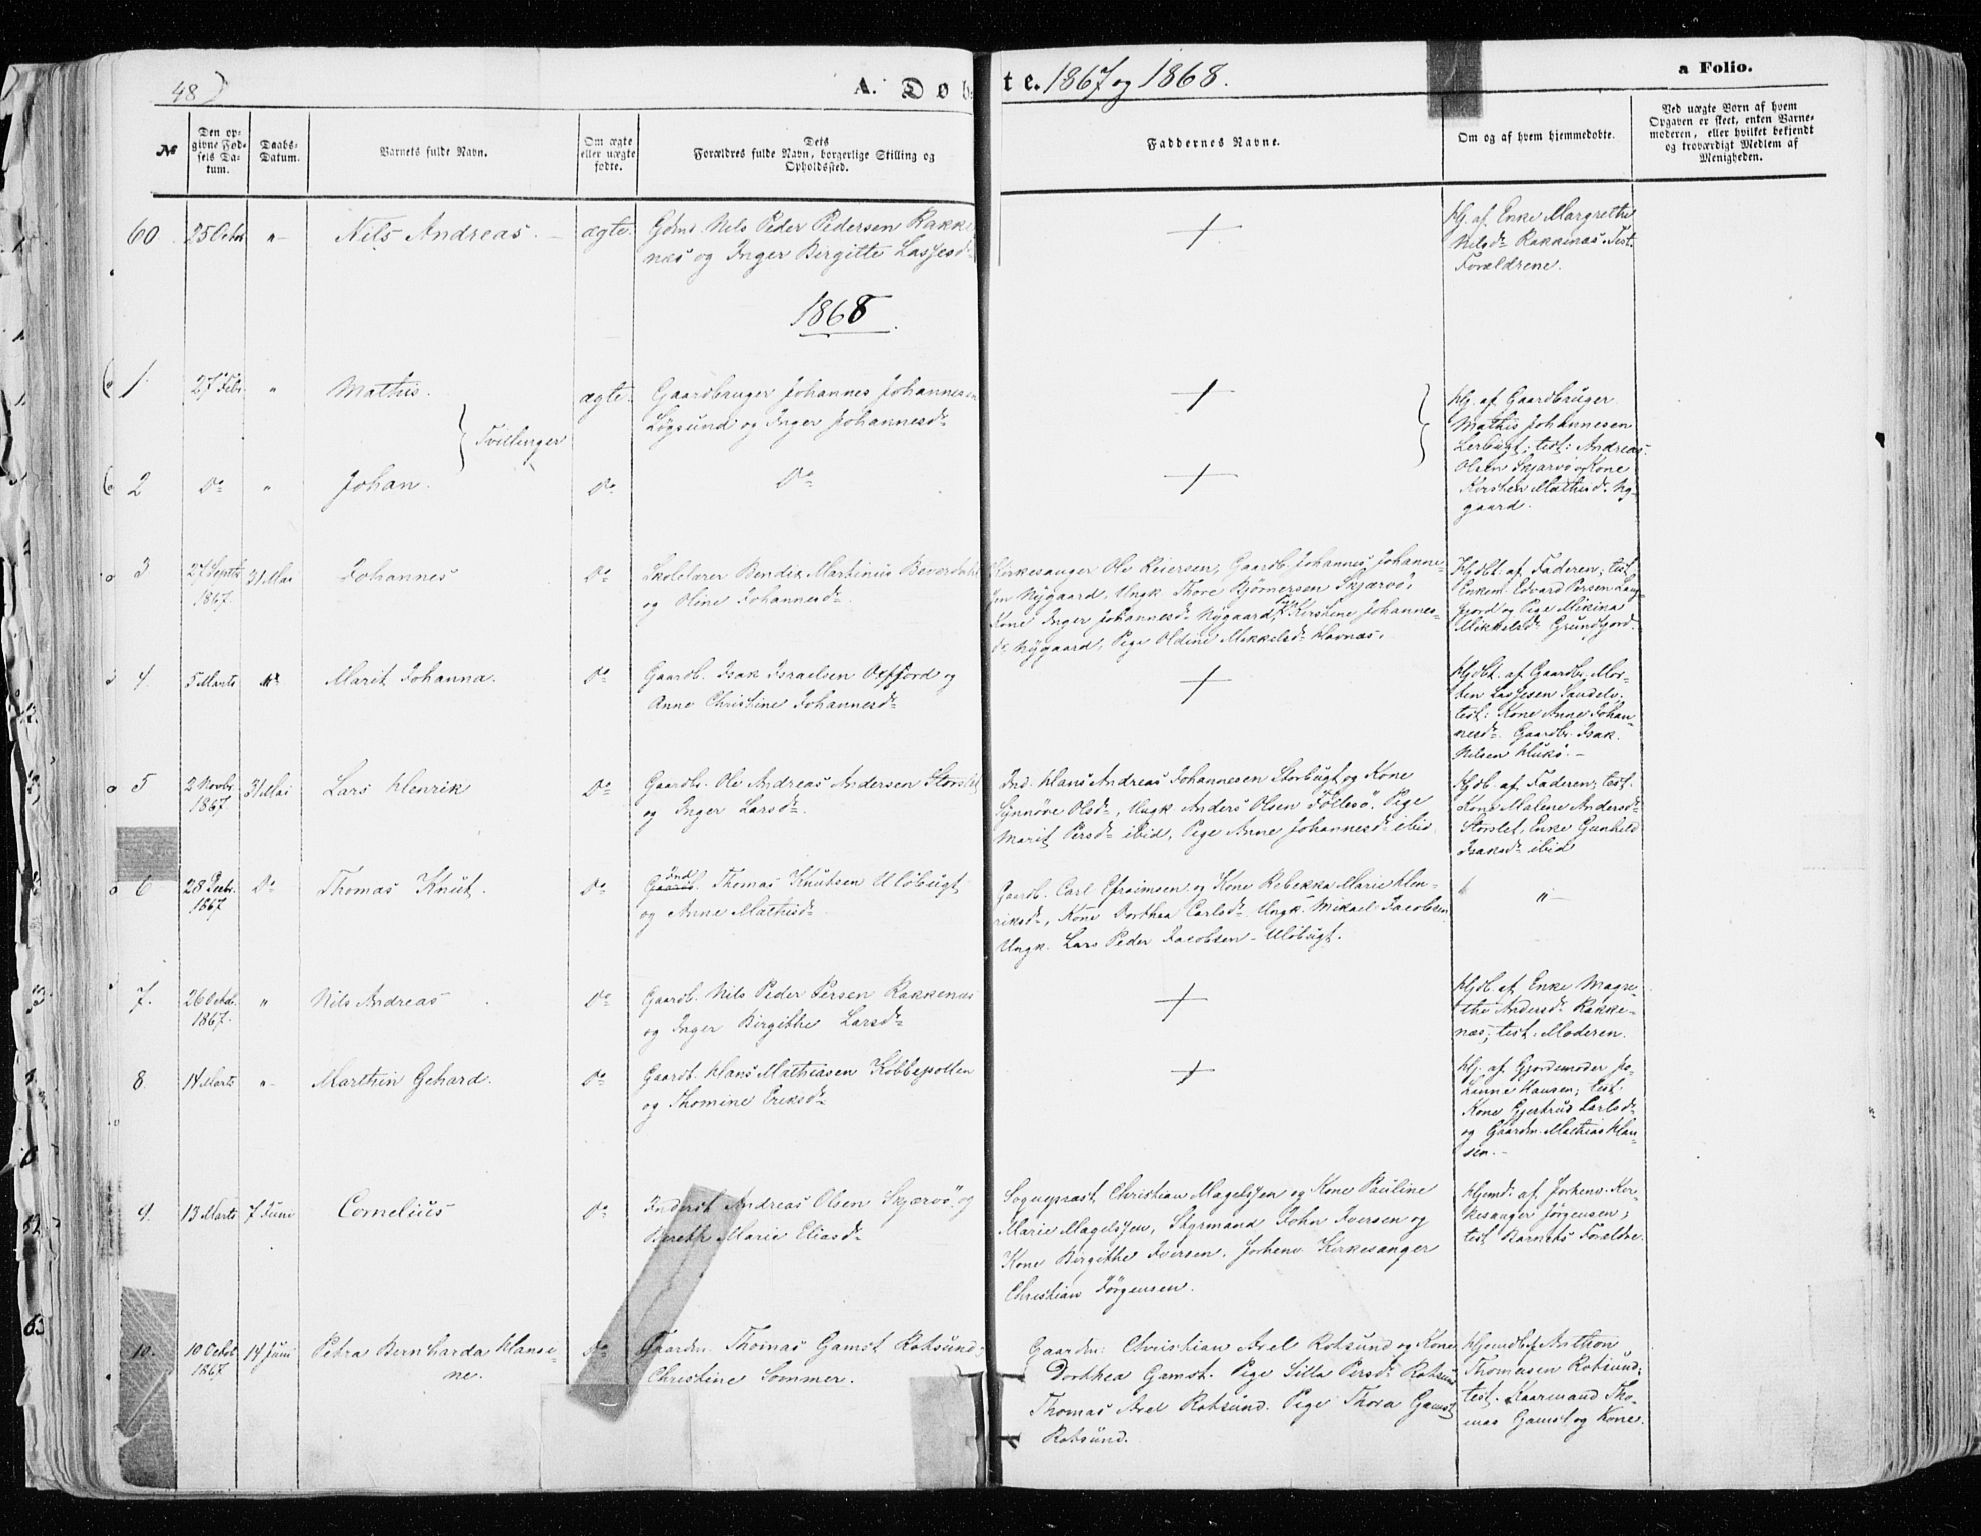 48)
A. Døb-
te. 1867 og 1868.
a Folio.
No
Den op-
givne Fød-
sels Da-
tum.
Daabs-
Datum.
Barnets fulde Navn.
Om ægte
eller uægte
fødte.
Dets
Forældres fulde Navn, borgerlige Stilling og
Opholdssted.
Faddernes Navne.
Om og af hvem hjemmedøbte.
Ved uægte Børn af hvem
Opgaven er skeet, enten Barne-
moderen, eller hvilket bekjendt
og troværdigt Medlem af
Menigheden.
60 25 Octbr " Nils Andreas. ægte. Gdmd. Nils Peder Pedersen Rakke-
næs og Inger Birgitte Lassesdr
+
Hj. af Enke Margrethe
Nilsdr Rakkenæs Test.
Forældrene.
1868.
1. 27 Febr. " Mathis. ægte. Gaardbruger Johannes Johannesen
Løgsund og Inger Johannesdr
+
Tvillinger
2 Do " Johan. Do Do
+
Hj. af Gaardbruger
Mathis Johannesen
Lerbugt; test: Andreas
Olsen Skjærvø og Kone
Kirsten Mathisdr Ny-
gaard.
3 27 Septbr 31 Mai Johannes Do Skolelærer Bendix Martinius Beverdahl
1867. og Oline Johannesdr
Kirkesanger Ole Reiersen, Gaardb. Johannes Johanne-
sen Nygaard, Ungk. Thore Bjørnersen Skjærvø,
Kone Inger Johannesdr Nygaard, Pige Kirstine Johannes-
dr Nygaard, Pige Oldine Mikkelsdr Havnæs.
Hjdbt. af Faderen; test
Enkem. Edvard Persen Lang-
fjord og Pige Mikina
Mikkelsdr Grundfjord.
4. 5 Marts " Marit Johanna. Do Gaardb. Isak Israelsen Oxfjord og
Anne Christine Johannesdr
+
Hjdbt. af Gaardbr. Mor-
ten Lassesen Sandelv.
test: Kone Anne Johan-
nesdr Gaardbr. Isak
Nilsen Hukø.
5 2 Novbr. 31 Mai Lars Henrik Do Gaardbr. Ole Andreas Andersen Storslet
1867. og Inger Larsdr.
Ind. Hans Andreas Johannesen Storbugt og Kone
Synnøve Olsdr, Ungk Anders Olsen Follesø. Pige
Marit Persdr ibid, Pige Anne Johannesdr ibid.
Hjdb. af Faderen; test.
Kone Malene Andersdr
Storslet, Enke Gunhild
Isaksdr ibid
6 28 Decbr. Do Thomas Knut. Do Ind. Thomas Knutsen Uløbugt
1867 og Anne Mathisdr
Gaardb. Carl Efraimsen og Kone Rebekka Marie Hen-
riksdr, Kone Dorthea Carlsdr Ungk. Mikael Jacobsen
Ungk. Lars Peder Jacobsen - Uløbugt.
"
7. 26 Octbr. " Nils Andreas Do Gaardb. Nils Peder Persen Rakkenæs
1867. og Inger Birgithe Larsdr
+
Hjdb. af Enke Magre-
the Andersdr Rakke-
næs; test: Moderen.
8 14 Marts " Marthin Gehard. Do Gaardb. Hans Mathiasen Kobbepollen
og Thomine Eriksdr
+
Hj. af Gjordemoder Jo-
hanne Hansen; test:
Kone Gjertrud Carlsdr
og Gaardm. Mathias Han-
sen.
9. 13 Marts 7 Juni Cornelius Do Inderst Andreas Olsen Skjærvø og
Bereth Marie Eliasdr
Sognepræst Christian Magelssen og Kone Pauline
Marie Magelssen, Styrmand John Iversen og
Kone Birgithe Iversen. Forhenv. Kirkesanger
Christian Jørgensen.
Hjemd. af Forhenv. Kir-
kesanger Jørgensen;
test Barnets Forældre.
10. 10 Octbr 14 Juni Petra Bernharda Hansi- Do Gaardm. Thomas Gamst Rotsund;
1867 ne. Christine Sommer.
Gaardm: Christian Axel Rotsund og Kone
Dorthea Gamst. Pige Silla Persdr Rotsund
Thomas Axel Rotsund. Pige Thora Gamst
Rotsund.
Hjemdb. af Anthon
Thomesen Rotsund:
test. Kaarmand Tho-
mas Gamst og Kone.